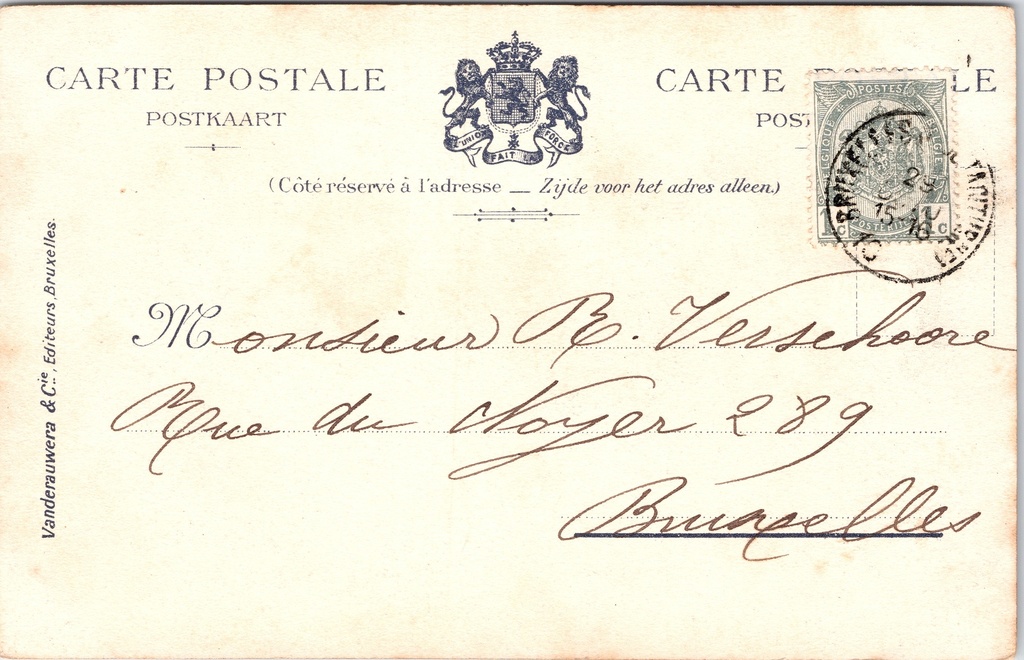 CARTE POSTALE
POSTKAART
L'UNION FAIT LA FORCE
CARTE P LE
POST
POSTES
(Côté réservé à l'adresse — Zijde voor het adres alleen.)
BRUXELLES
29
15-16
1 c 1 c
Monsieur R. Verschoore
Rue du Noyer 289
Bruxelles
Vanderauwera & Cie, Editeurs, Bruxelles.